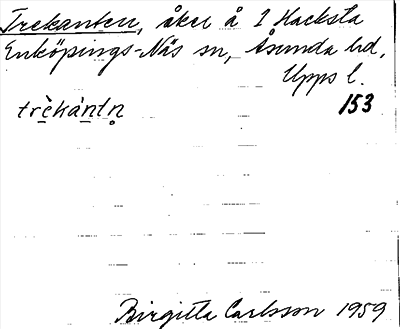 Trekanten, åker å 1 Hacksta
Enköpings-Näs sn, Åsunda hd,
Upps l.
153
trè̱kàṉtn̥
Birgitta Carlsson 1959